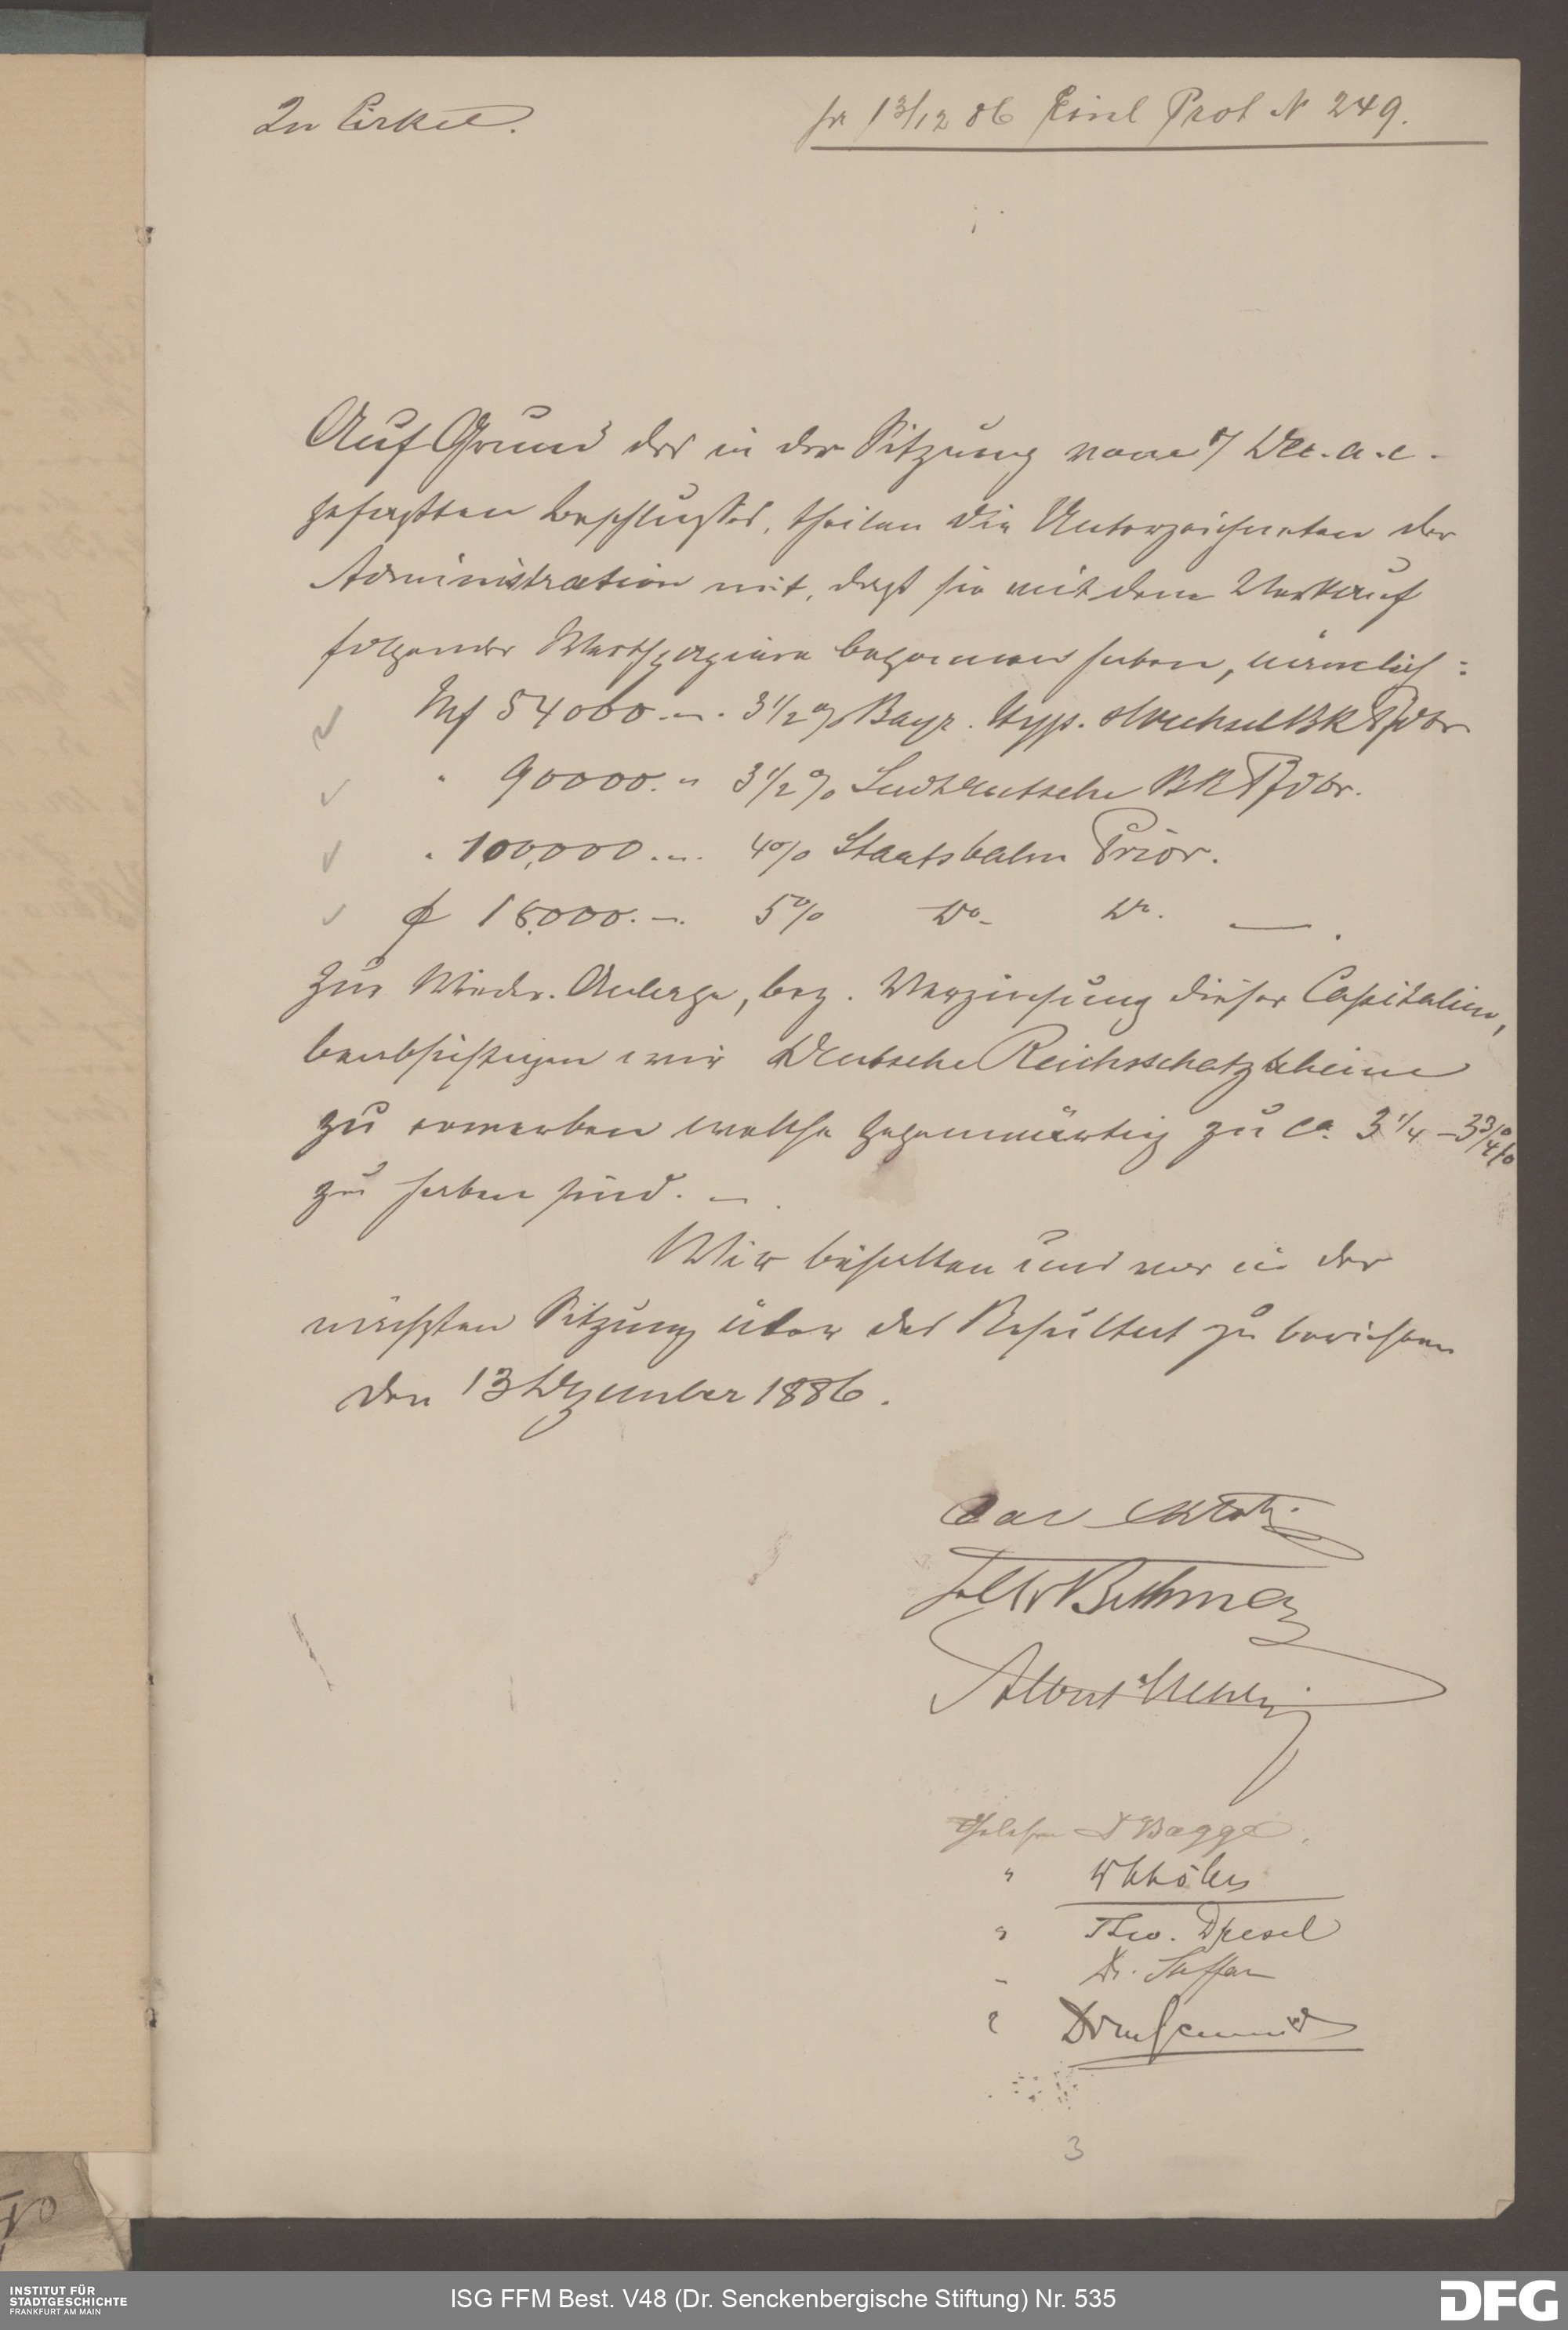 In Cirkel.
pr 13/12 86 Einl Prot N 249.
Auf Grund des in der Sitzung vom 7 Dec. a. c.
gefaßten Beschlusses, theilen die Unterzeichneten der
Administration mit, daß sie mit dem Verkauf
folgender Werthpapiere begonnen haben, nämlich:
Mk 54000.—. 3 1/2 % Bayr. Hyp. & Wechsel BK Pfdbr
" 90000." 3 1/2 % Süddeutsche BK Pfdbr.
" 100,000.—. 4% Staatsbahn Prior.
18.000.—. 5% do. do. —.
Zur Wieder-Anlage, bez. Verzinsung dieser Capitalien,
beabsichtigen wir Deutsche Reichsschatzscheine
zu erwerben welche gegenwärtig zu ca. 3 1/4 – 3 3/4 %
zu haben sind. —.
Wir behalten uns vor in der
nächsten Sitzung über das Resultat zu berichten
den 13 Dezember 1886.
Bethmann
Albert
Gelesen Dr Bagge.
"
" Theo. Dresel
" Dr. Steffan
"
3
INSTITUT FÜR
STADTGESCHICHTE
FRANKFURT AM MAIN
ISG FFM Best. V48 (Dr. Senckenbergische Stiftung) Nr. 535
DFG